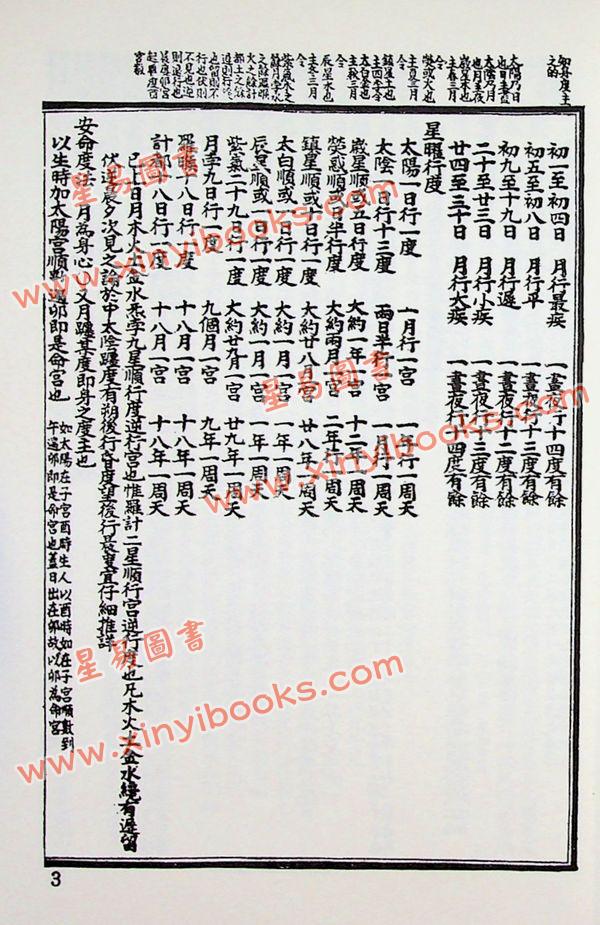 如身度主
之的
太陽乃日
也
太陰乃月
也
初一至初四日　月行最疾　一晝夜行十四度有餘
初五至初八日　月行平　一晝夜行十三度有餘
初九至十九日　月行遲　一晝夜行十二度有餘
二十至廿三日　月行小疾　一晝夜行十三度有餘
廿四至三十日　月行大疾　一晝夜行十四度有餘
星曜行度
太陽一日行一度　一月行一宮　一年行一周天
太陰一日行十三度　兩日半行一宮　一月行一周天
歲星順或五日行一度　大約一年一宮　十二年一周天
熒惑順或日半行一度　大約兩月一宮　二年一周天
鎮星順或十日行一度　大約廿八月一宮　廿八年一周天
太白順或一日行一度　大約一月一宮　一年一周天
辰星順或一日行一度　大約一月一宮　一年一周天
紫氣二十九日行一度　大約廿九月一宮　廿九年一周天
月孛九日行一度　九個月一宮　九年一周天
羅睺十八日行一度　十八月一宮　十八年一周天
計都十八日行一度　十八月一宮　十八年一周天
已上日月木火土金水炁孛九星順行度逆行宮也惟羅計二星順行宮逆行度也凡木火土金水纔有遲留
伏逆晨夕次見之論於中太陰躔度有朔後行昏度望後行晨度宜仔細推詳
安命度法 月為身心 又月躔某度即身之度主也
以生時加太陽宮順數遇卯即是命宮也
如太陽在子宮酉時生人以酉時加在子宮順數到
午遇卯即是命宮也蓋日出在卯故以卯為命宮
3
星易圖書
www.xinyibooks.com
星易圖書
www.xinyibooks.com
星易圖書
www.xinyibooks.com